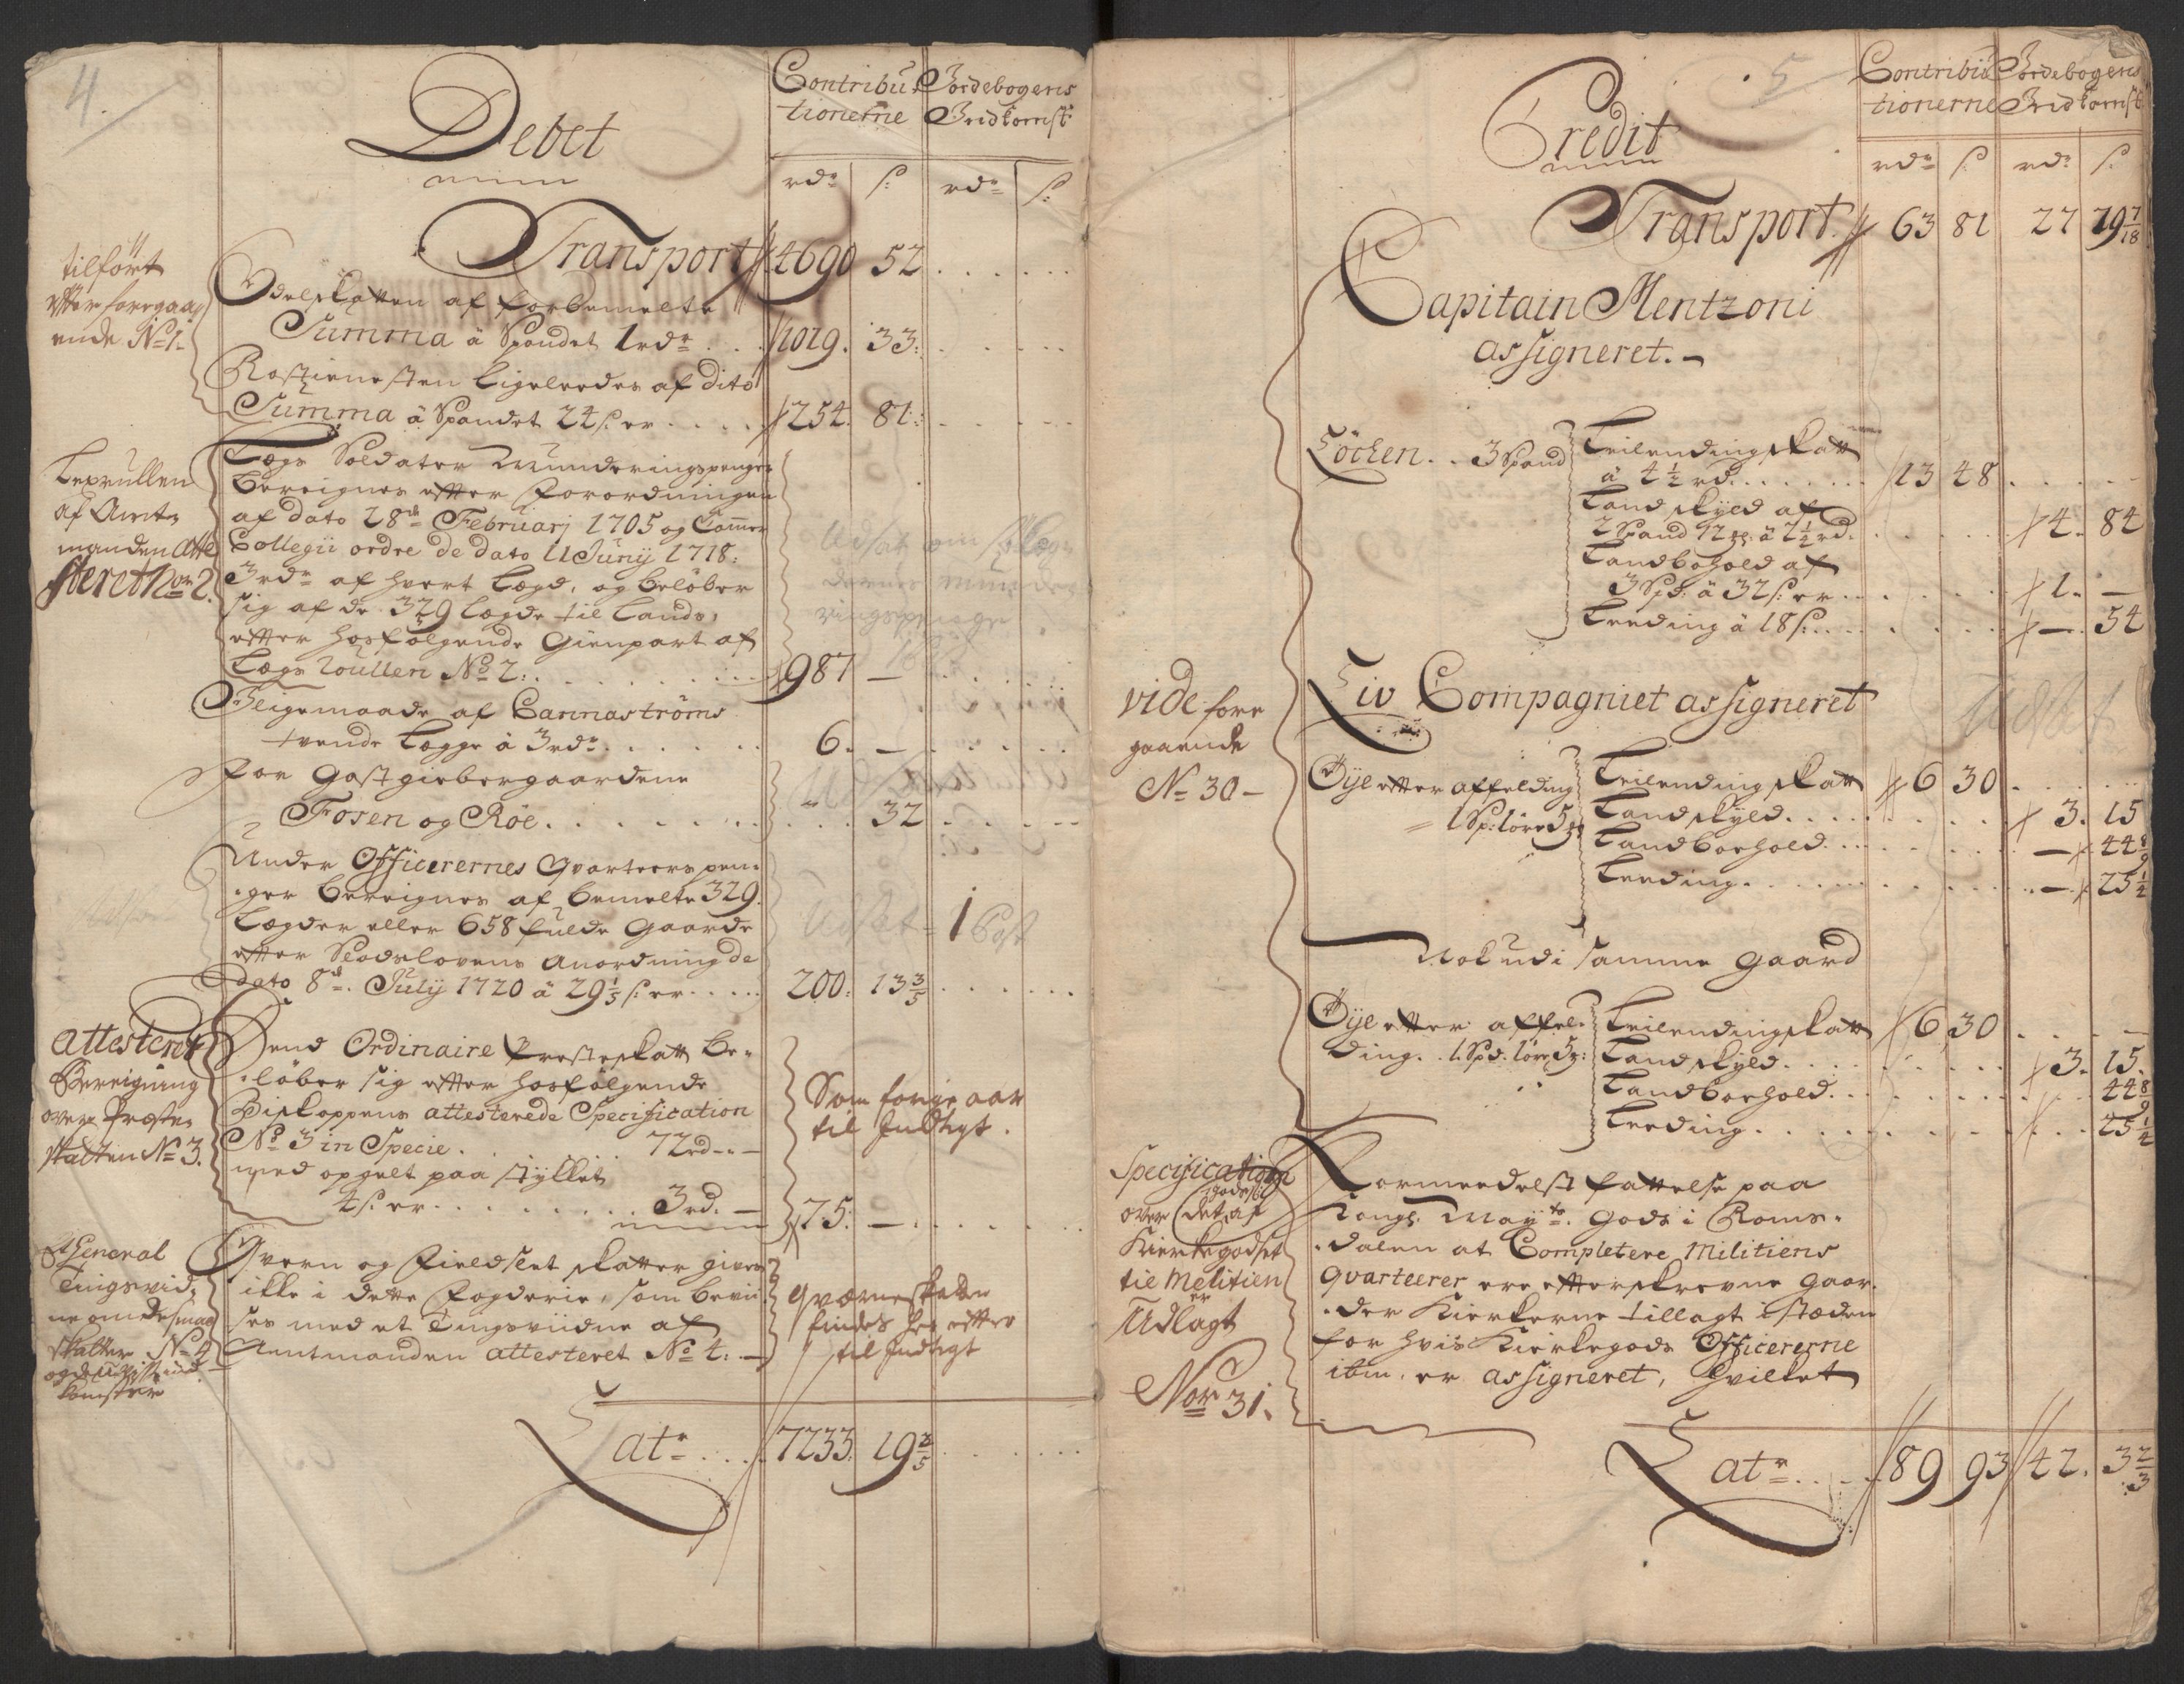 4.
Debet
Contribu
tionerne
Jordebogens
Indkomst
rdr ß: rdr ß:
Transport 4690 52
tilført
efter foregaa
ende No 1.
Odelskatten af forbemelte
Summa à Spandet 1 rdr . . . 1019. 33:
Rostienesten ligeleedes af dito
Summa à Spandet 24 ß: er . . . . 254. 81:
Legrullen
af Amt-
manden Atte
steret No 2.
Lægs Soldater Munderingspenger
bereignes efter Forordningen
af dato 28de Februarj 1705 og Cammer
Collegii ordre de dato 11 Junij 1718:
3 rdr af hvert Lægd, og beløber
sig af de 329 Lægde til Lands,
efter hosfølgende Gienpart af
Lægs Roullen No 2: . . . . . 987 —
Udsat som
penge
Iligemaade af Cannastrøms
tvende Lægge à 3 rdr . . . . . 6. —
For Gastgiebergaardene
Fosen og Røe . . . . . . . 32
Under Officerernes Qvarteerspen-
ger bereignes af bemelte 329
Lægder eller 658 fulde Gaarde
efter Slodslovens Anordning de
dato 8de July 1720 à 29 1/5 ß: er . . . . 200: 13 3/5
Udsat 1 Post
Attesteret
Bereigning
over Præste-
skatten No 3.
Dend Ordinaire Presteskatt be-
løber sig efter hosfølgende
Biskoppens attesterede Specification
No 3 in Specie . . . . 72 rd —
med opgelt paa Styllet
4 ß: er . . . . . . . . . 3 rd. — 75: —
Som forige aar
til Indtegt.
General
Tingsvid-
ne om de smaa
Skatter No 4
og de uvisse ind
komster
Qvern og Fieldleet skatter gives
ikke i dette Fogderie, som bevii-
ses med et Tingsviidne af
Amtmanden attesteret No 4: —
Qværneskatten
findes her efter
til Indtegt
Latr . . . . 7233. 19 2/5
5
Credit
Contribu
tionerne
Jordebogens
Indkomst
rdr ß rdr ß:
Transport. 63 81 27 19 7/18
Capitain Mentzoni
assigneret. —
Löchen . . 3 Spand Leilendingskatt
à 4 1/2 rd . . . . . . 13 48
Landskyld af
2 Spand 12 à 2 1/2 rd. . . . 4. 84
Landbohold af
3 Spd: à 32 ß: er . . . . 1. —
Leeding à 18 ß: . . . . — 54
vide fore
gaaende
No 30 —
Liv Compagniet assigneret
Øye efter affelding Leilendingskatt 6 30
1 Sp: 1 øre 5 Landskyld . . . . . 3. 15
Landborhold . . . . . — 44 8/9
Leeding . . . . . . — 25 1/4
Nok udi samme Gaard
Øye efter affel- Leilendingskatt 6 30
ding . . 1 Spd. 1 øre 5: Landskyld . . . . . 3. 15.
Landborhold . . . . . 44 8/9
Leeding . . . . . . 25 1/4
Specification
over det af
godset
Kierkegodset
til Melitien
er
Udlagt
Nor 31.
Formeedelst fattelse paa
Kongl. Mayts. Gods i Roms-
dalen at Completere Militiens
Qvarteerer ere efterskrevne Gaar-
der Kierkerne tillagt i stæden
for hvis Kierkegods Officererne
ibm. er assigneret, hvilket
Latr . . . . 89 93 42. 3 2/3